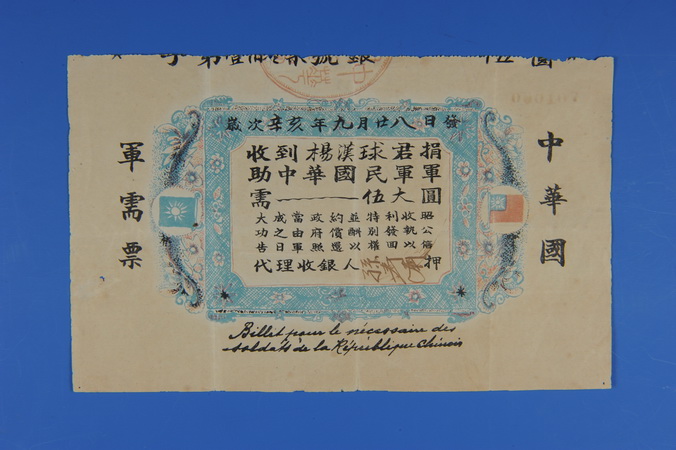 歲次辛亥年九月廿八日發
收到楊漢球君捐
助中華國民軍軍
需伍大圓
大功告成之日當由軍政府照約償還並酬以特別權利發回收執以昭公信
代理收銀人 押
軍需票
中華國
Billet pour le nécessaire des
soldats de la République Chinois